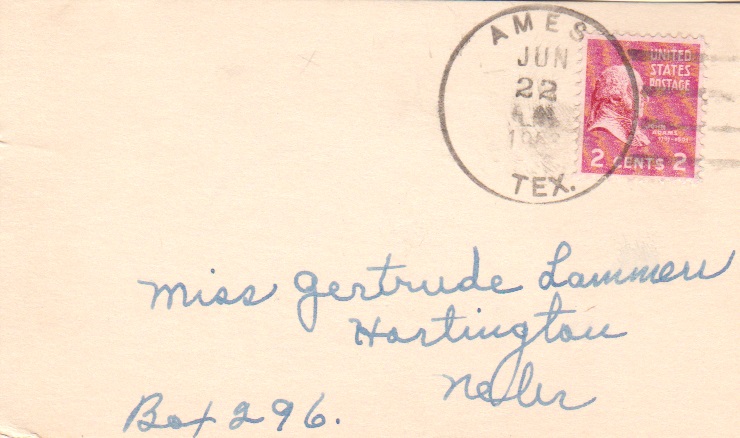 AMES
JUN
22
TEX.
UNITED
STATES
POSTAGE
ADAMS
2 CENTS 2
Miss Gertrude Lammers
Hartington
Nebr
Box 296.